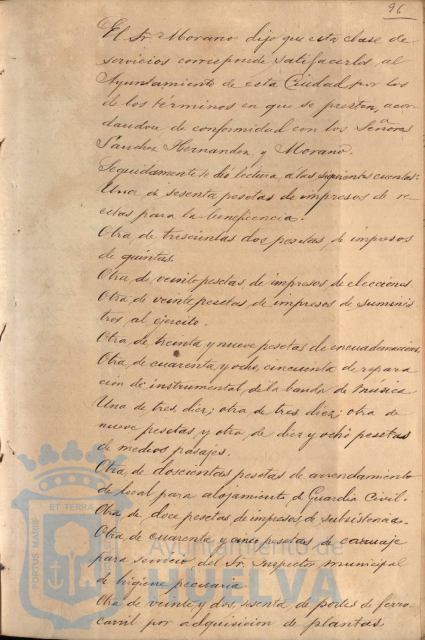 96
El Sr. Morano dijo que esta clase de
servicios corresponde satisfacerlos al
Ayuntamiento de esta Ciudad, por los
de los términos en que se presten, acor
dandose de conformidad con los Señores
Sanchez Hernandez, y Morano.
Seguidamente se dió lectura a las siguientes cuentas:
Una de sesenta pesetas de impresos de re
cetas para la beneficencia.
Otra de trescientas dos pesetas, de impresos
de quintas.
Otra de veinte pesetas, de impresos de elecciones.
Otra de veinte pesetas, de impresos de suminis
tros al ejercito.
Otra de treinta y nueve pesetas de encuadernaciones
Otra de cuarenta y ocho, cincuenta de repara
ción de instrumental, de la banda de música
Una de tres, diez; otra de tres diez; otra de
nueve pesetas, y otra de diez y ocho pesetas
de medios pasajes.
Otra de doscientas pesetas de arrendamiento
de local para alojamiento de Guardia Civil.
Otra de doce pesetas de impresos de subsistencias.
Otra de cuarenta y cinco pesetas de carruaje
para servicio del Sr. Inspector municipal
de higiene pecuaria
Otra de veinte y dos, sesenta de portes de ferro
carril por adquisicion de plantas
PORTUS MARIS ET TERRA
Ayuntamiento de
HUELVA